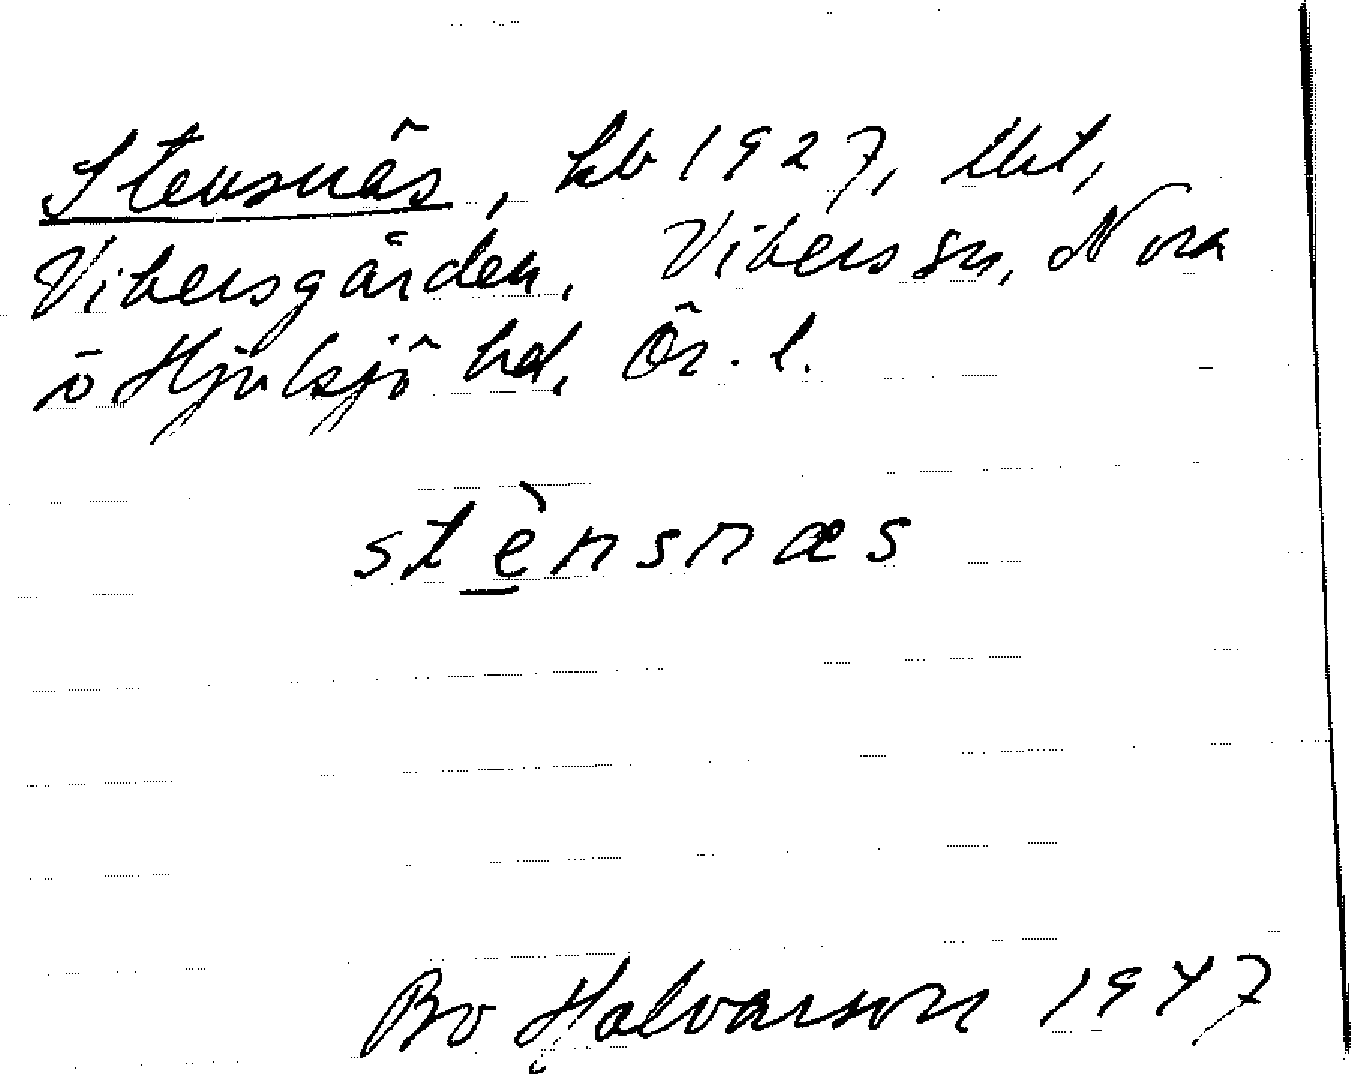 Stensnäs, kb 1927, lht,
Vikersgården, Vikers sn, Nora
o Hjulsjö hd, Ör. l.
stènsnæs
Bo Halvarson 1947